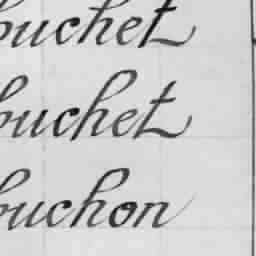 buchet
buchet
buchon